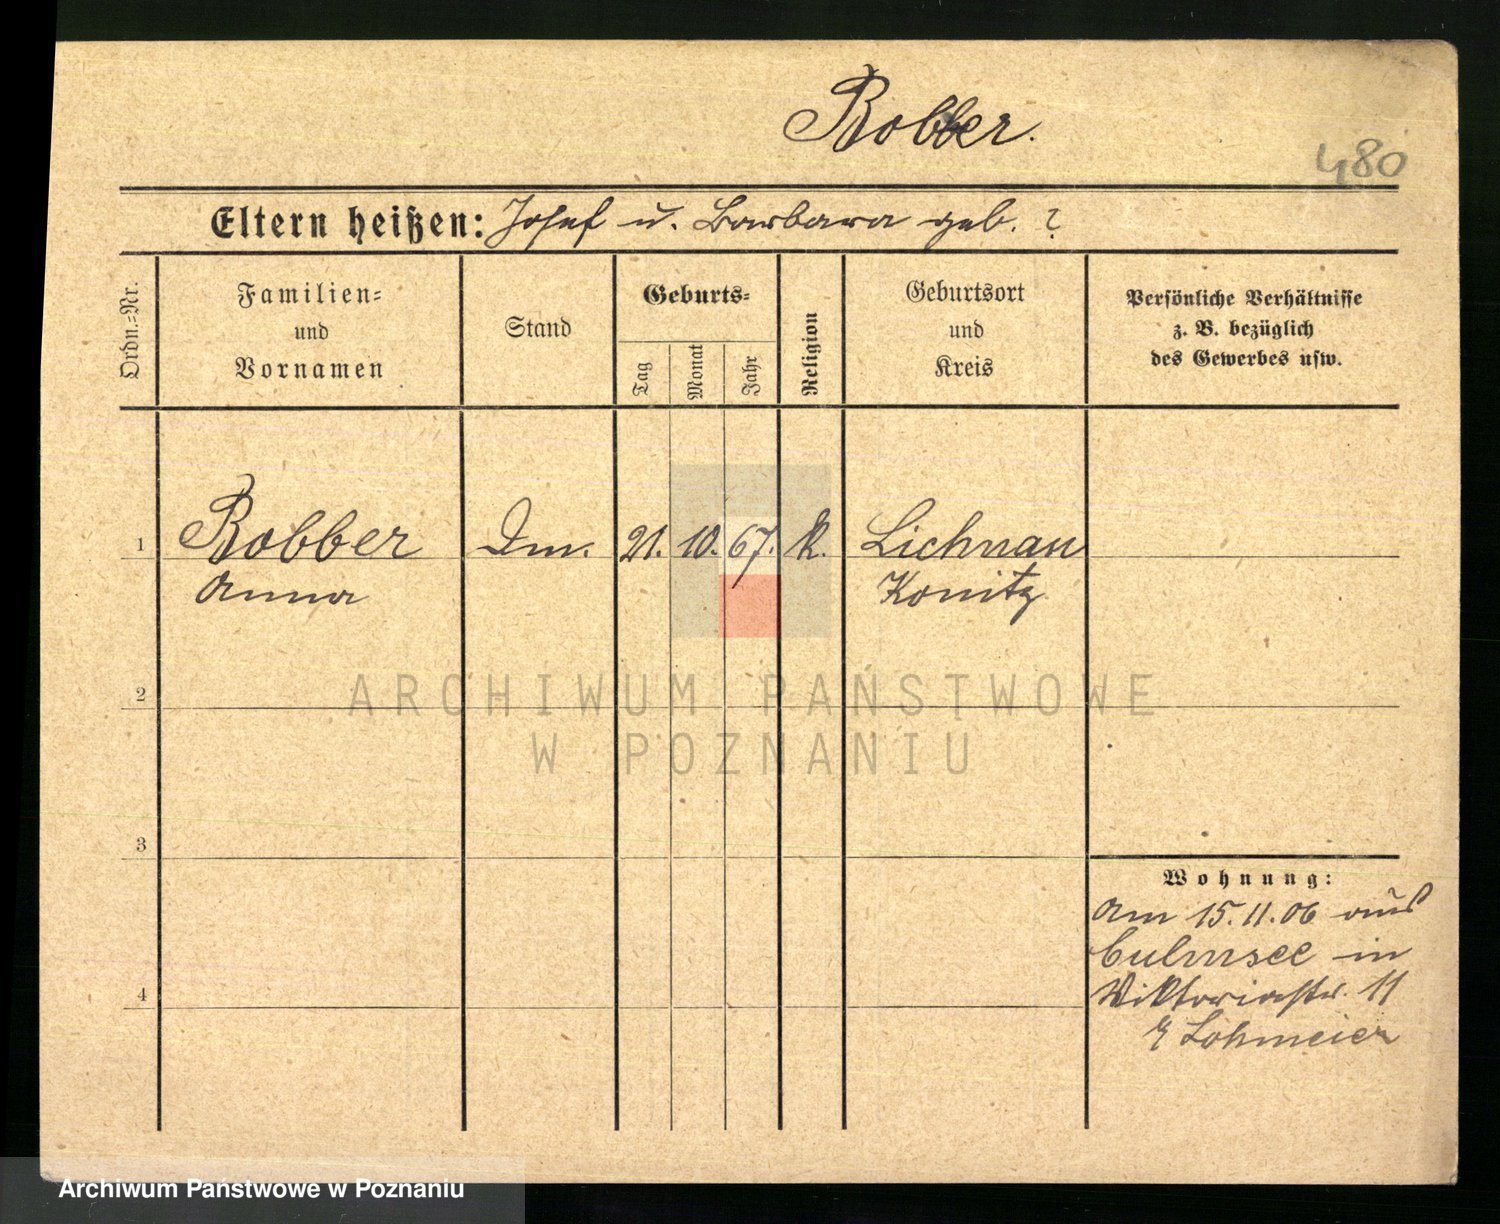 Robber.
480
Eltern heißen: Josef u. Barbara geb. ?
Ordn.-Nr.
Familien-
und
Vornamen
Stand
Geburts-
Tag
Monat
Jahr
Religion
Geburtsort
und
Kreis
Persönliche Verhältnisse
z. B. bezüglich
des Gewerbes usw.
1 Robber 21. 10. 67. k. Lichnau
Anna Konitz
2
ARCHIWUM PAŃSTWOWE
W POZNANIU
3
Wohnung:
Am 15.11.06 aus
Culmsee in
4
Viktoriastr. 11
Lohmeier
Archiwum Państwowe w Poznaniu